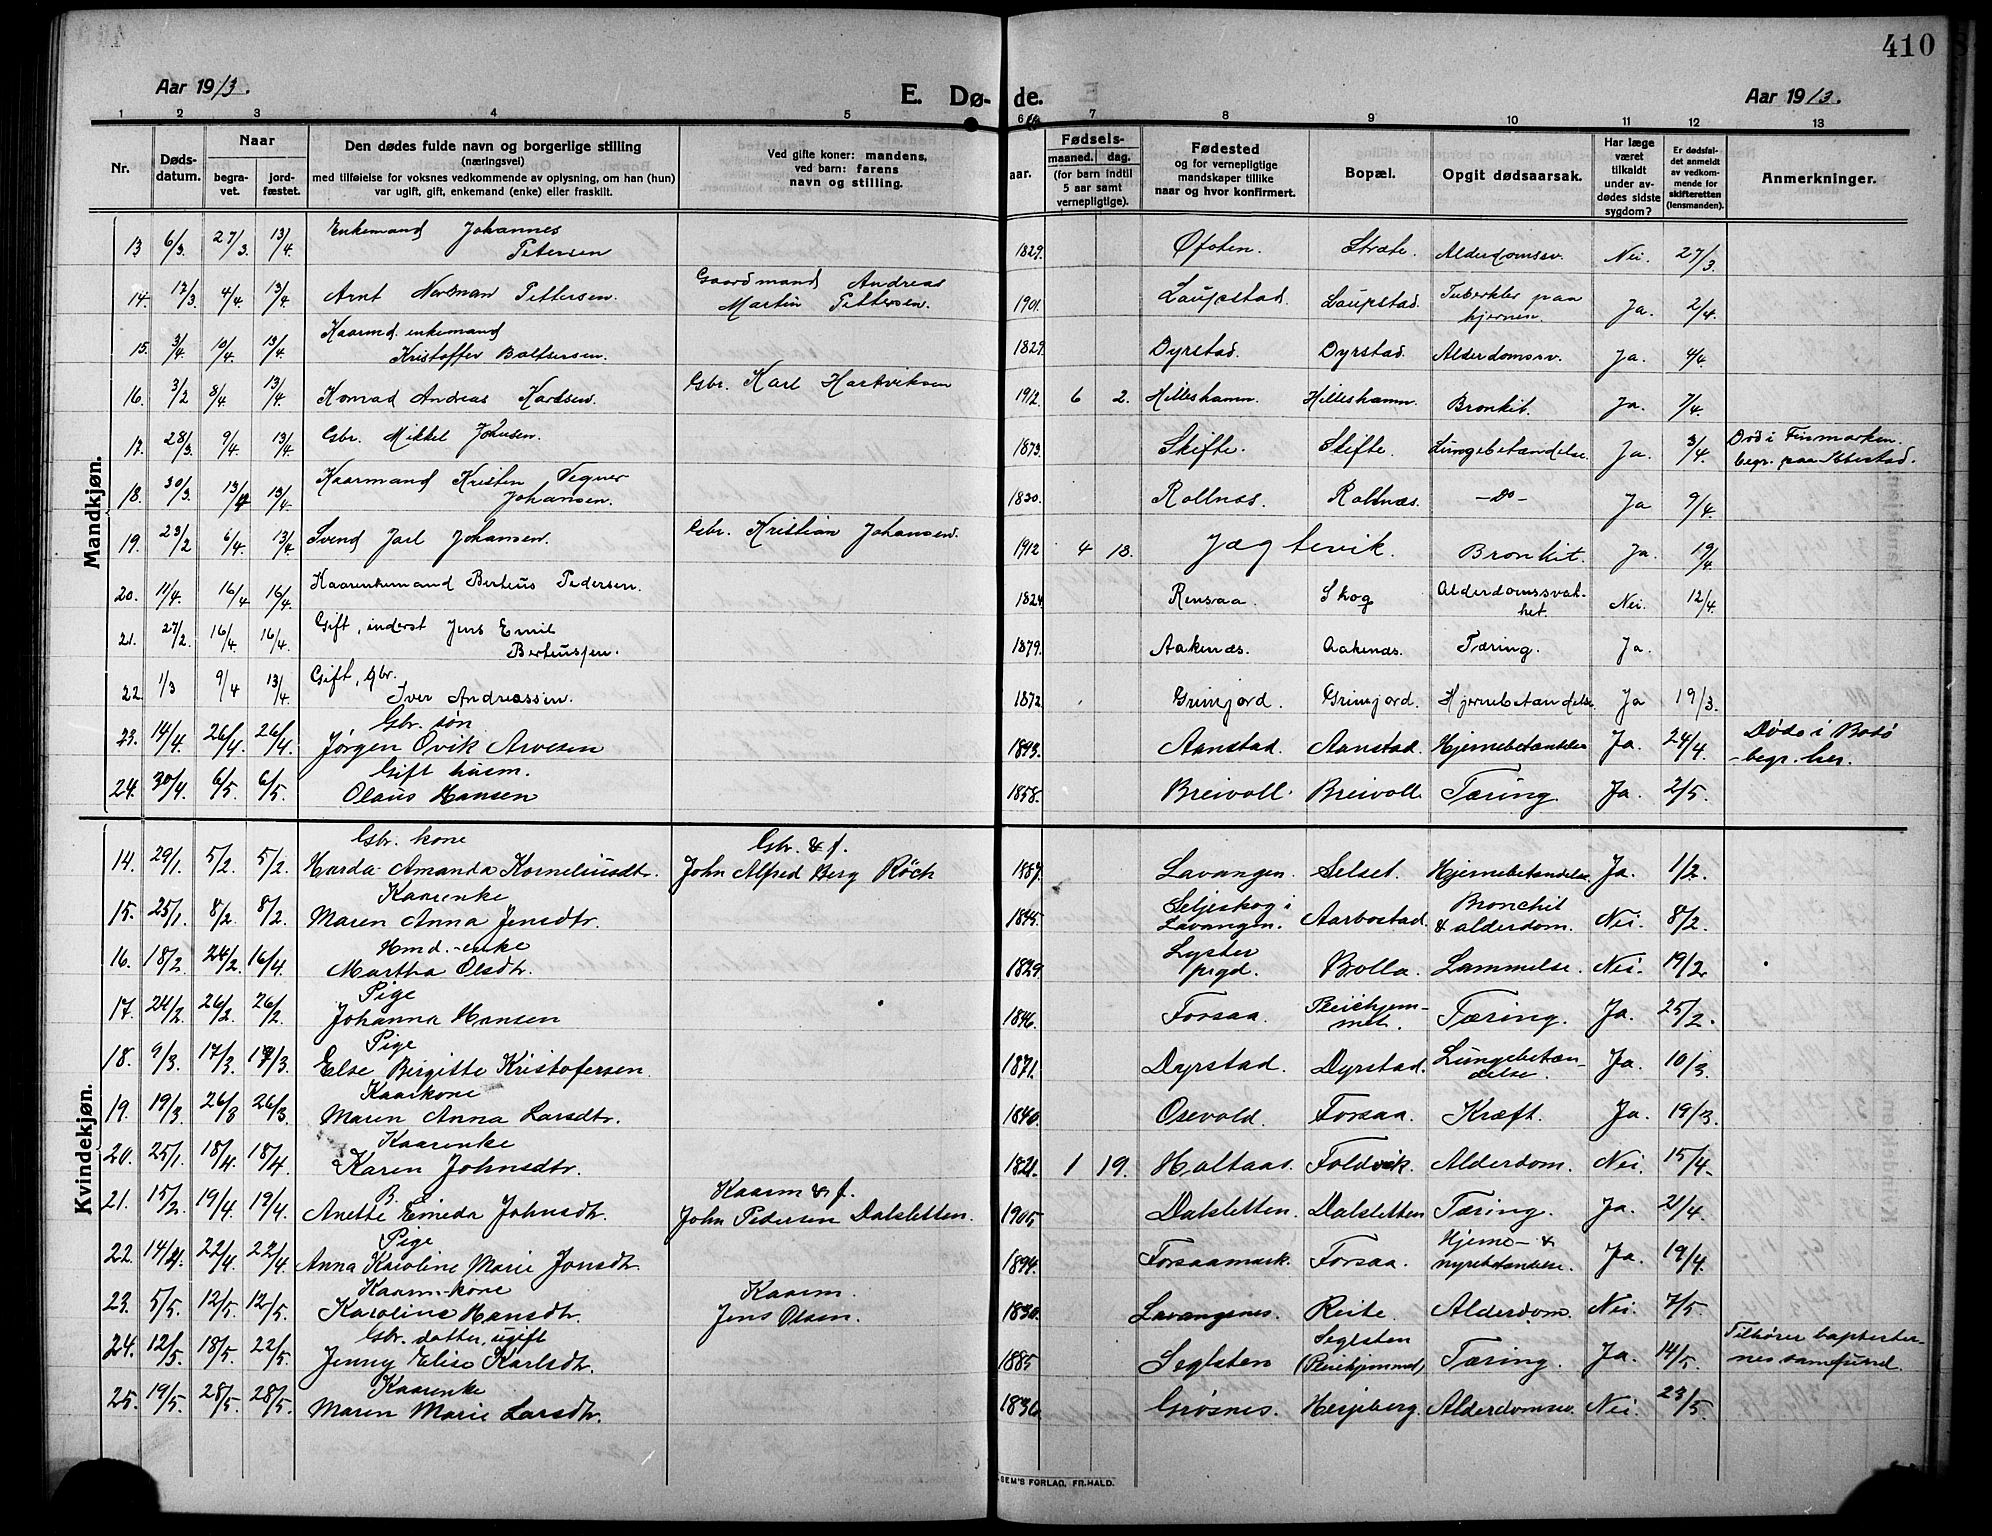 410
Aar 1913.
E. Dø-de.
Aar 1913.
1 2 3 4 5 6 7 8 9 10 11 12 13
Nr.
Døds-datum.
Naar
begra-vet.
jord-fæstet.
Den dødes fulde navn og borgerlige stilling
(næringsvei)
med tilføielse for voksnes vedkommende av oplysning, om han (hun)
var ugift, gift, enkemand (enke) eller fraskilt.
Ved gifte koner: mandens,
ved barn: farens
navn og stilling.
aar.
Fødsels-
maaned. dag.
(for barn indtil
5 aar samt
vernepligtige).
Fødested
og for vernepligtige
mandskaper tillike
naar og hvor konfirmert.
Bopæl.
Opgit dødsaarsak.
Har læge
været
tilkaldt
under av-
dødes sidste
sygdom?
Er dødsfal-
det anmeldt
av vedkom-
mende for
skifteretten
(lensmanden).
Anmerkninger.
Mandkjøn.
13 6/3 27/3 13/4 Enkemand Johannes
Petersen 1829. Ofoten. Stræte. Alderdomssv. Nei. 27/3
14. 17/3 4/4 13/4 Arnt Norman Pettersen. Gaardmand Andreas
Martin Pettersen. 1901. Laupstad. Laupstad. Tuberkler paa
hjernen. Ja. 2/4.
15. 3/4 10/4 13/4 Kaarmd. enkemand
Kristoffer Baltsersen. 1829. Dyrstad. Dyrstad. Alderdomssv. Ja. 4/4
16. 3/2 8/4 13/4 Konrad Andreas Karlsen. Gbr. Karl Hartviksen 1912. 6 2. Hilleshamn. Hilleshamn. Bronkit. Ja. 7/4.
17. 28/3 9/4 13/4 Gbr. Mikkel Johnsen. 1873. Skifte. Skifte. Lungebetændelse Ja. 3/4. Død i Finmarken.
begr. paa Ibbestad.
18. 30/3 13/4 13/4 Kaarmand Kristen Vegner
Johansen. 1830. Rollnæs. Rollnæs. —Do— Ja 9/4.
19. 23/2 6/4 13/4 Svend Jarl Johansen. Gbr. Kristian Johansen. 1912 4 13. Jægtevik. Bronkit. Ja. 19/4.
20. 11/4. 16/4 16/4 Kaarenkemand Berteus Pedersen. 1824. Rensaa. Skog Alderdomssvak-
het. Nei. 12/4.
21. 27/2. 16/4 16/4 Gift, inderst Jens Emil
Berteussen. 1879. Aakenæs. Aakenæs. Tæring. Ja.
22. 1/3 9/4 13/4 Gift, gbr.
Iver Andreassen. 1872 Grinjord. Grinjord. Hjernebetændelse Ja 19/3.
23. 14/4. 26/4. 26/4. Gbr. søn
Jørgen Ovik Arvesen 1893. Aanstad. Aanstad. Hjernebetændelse Ja. 24/4. Døde i Bodø
- begr. her.
24. 30/4. 6/5. 6/5. Gift husm.
Olaus Hansen 1858. Breivoll. Breivoll. Tæring. Ja. 2/5.
Kvindekjøn.
14. 29/1. 5/2. 5/2. Gbr. kone
Harda Amanda Korneliusdtr. Gbr. & f.
John Alfred Berg Röch 1887. Lavangen. Selset. Hjernebetændelse Ja. 1/2.
15. 25/1. 8/2. 8/2. Kaarenke
Maren Anna Jensdtr. 1845. Seljeskog i
Lavangen. Aarbostad. Bronchit
& alderdom. Nei. 8/2.
16. 18/2. 24/2. 16/4. Hmd.-enke
Martha Olsdtr. 1829. Lyster
prgd. Bolla. Lammelse. Nei. 19/2.
17. 24/2. 26/2. 26/2. Pige
Johanna Hansen 1846. Forsaa. Pleiehjem-
met. Tæring. Ja. 25/2.
18. 9/3. 17/3. 17/3. Pige
Else Birgitte Kristofersen. 1871. Dyrstad. Dyrstad. Lungebetæn-
delse. Ja. 10/3.
19. 19/3 26/3 26/3. Kaarkone
Maren Anna Larsdtr. 1840. Osevold. Forsaa. Kræft. Ja. 19/3.
20. 25/1. 18/4. 18/4. Kaarenke
Karen Johnsdtr. 1821. 1 19. Haltaas. Foldvik. Alderdom. Nei. 15/4.
21. 15/2. 19/4. 19/4. B.
Anette Emeda Johnsdtr. Kaarm & f.
John Pedersen Dalsletten. 1905. Dalsletten. Dalsletten Tæring. Ja. 2/4.
22. 14/4. 22/4. 22/4. Pige
Anna Karoline Marie Jonsdtr. 1894. Forsaamark. Forsaa. Hjerne- &
nyrebetændelse. Ja. 19/4.
23. 5/5. 12/5. 12/5. Kaarm.-kone
Karoline Hansdtr. Kaarm.
Jens Olsen. 1830. Lavangsnes. Reite Alderdom. Nei. 7/5.
24. 12/5 18/5. 22/5. Gbr. datter, ugift
Jenny Elise Karlsdtr. 1885 Seglsten Seglsten
(Pleiehjemmet) Tæring. Ja. 14/5. Tilhører baptister-
nes samfund.
25. 19/5. 28/5. 28/5. Kaarenke
Maren Marie Larsdtr. 1836. Grøsnes. Hesjeberg. Alderdomssv. Nei. 23/5.
SEM'S FORLAG, FR.HALD.